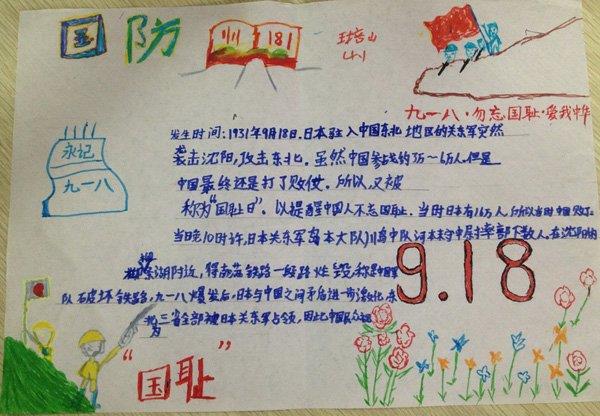 国防
九一八·勿忘国耻·爱我中华
永记
九一八
发生时间:1931年9月18日.日本驻入中国东北地区的关东军突然
袭击沈阳,攻击东北。虽然中国参战约 万人.但是
中国最终还是打了败仗.所以,又被
称为"国耻日".以提醒中国人不忘国耻.当时日本有 万人,所以当时中国
当晚10时许,日本关东军岛本大队川岛中队河本末守中尉率部下数人,在沈阳
湖附近, 铁路一段路炸毁,称是中国军
队破坏铁路,九一八爆发后,日本与中国之间矛盾进一步激化,东
北三省全部被日本关东军占领,因此中国
为
9.18
"国耻"